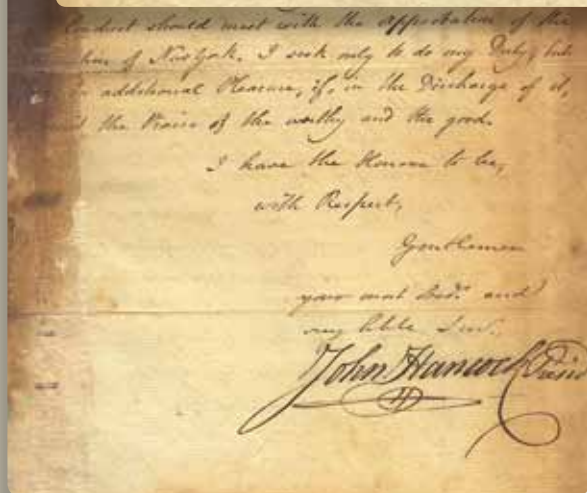 Conduct should meet with the Approbation of the
of New York. I seek only to do my Duty; but
additional Pleasure, if, in the Discharge of it,
the Praise of the worthy and the good.
I have the Honour to be,
with Respect,
Gentlemen
your most Obedt. and
very hble Ser.
John Hancock Presidt